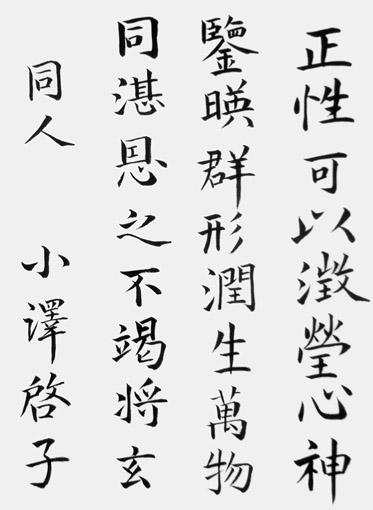 正性可以澂瑩心神
鑒暎群形潤生萬物
同湛恩之不竭將玄
同人 小澤啓子